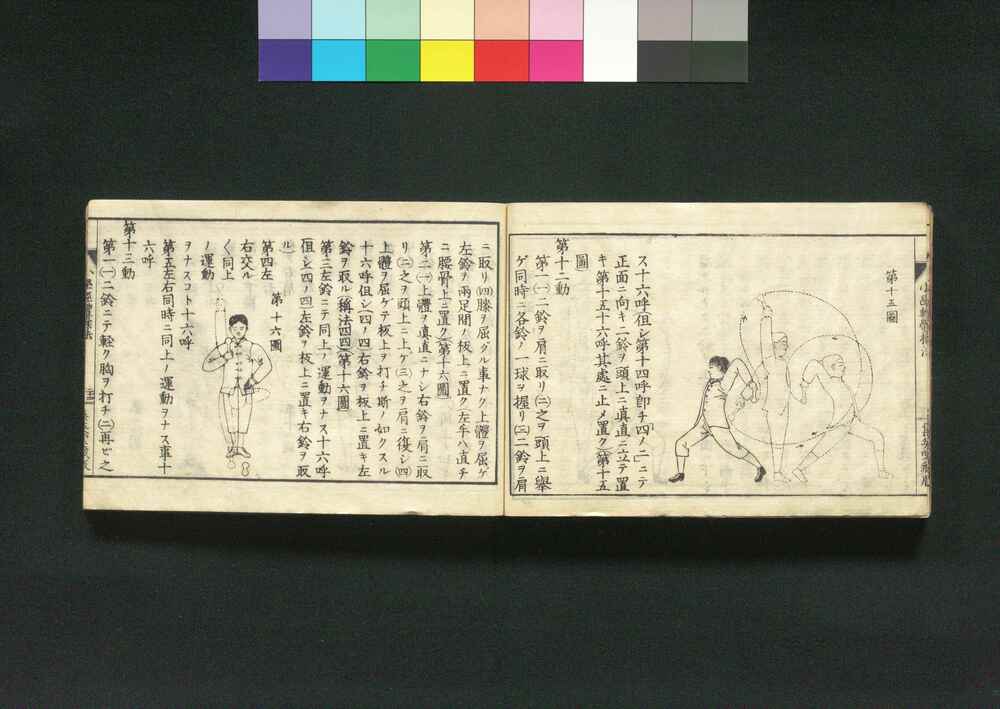 第十五圖
ス十六呼但シ第十四呼卽チ四ノ二ニテ
正面ニ向キ二鈴ヲ頭上ニ眞直ニ立テ置
キ第十五十六呼其處ニ止メ置ク(第十五
圖
第十二動
第一(一)二鈴ヲ肩ニ取リ(二)之ヲ頭上ニ擧
ゲ同時ニ各鈴ノ一球ヲ握リ(三)二鈴ヲ肩
ニ取リ(四)膝ヲ屈グル事ナク上體ヲ屈ゲ
左鈴ヲ兩足間ノ板上ニ置ク(左手ハ直チ
ニ腰骨上ニ置ク)(第十六圖)
第二(一)上體ヲ眞直ニナシ右鈴ヲ肩ニ取
リ(二)之ヲ頭上ニ上ゲ(三)之ヲ肩ニ復シ(四)
上體ヲ屈ゲテ板上ヲ打チ斯ノ如クスル
十六呼但シ(四ノ四右鈴ヲ板上ニ置キ左
鈴ヲ取ル)稱法四四(第十六圖
第三左鈴ニテ同上ノ運動ヲナス十六呼
(但シ四ノ四左鈴ヲ板上ニ置キ右鈴ヲ取
ル)
第十六圖
第四左
右交ル
く同上
ノ運動
ヲナスコト十六呼
第五左右同時ニ同上ノ運動ヲナス事十
六呼
第十三動
第一(一)二鈴ニテ輕ク胸ヲ打チ(二)再ビ之